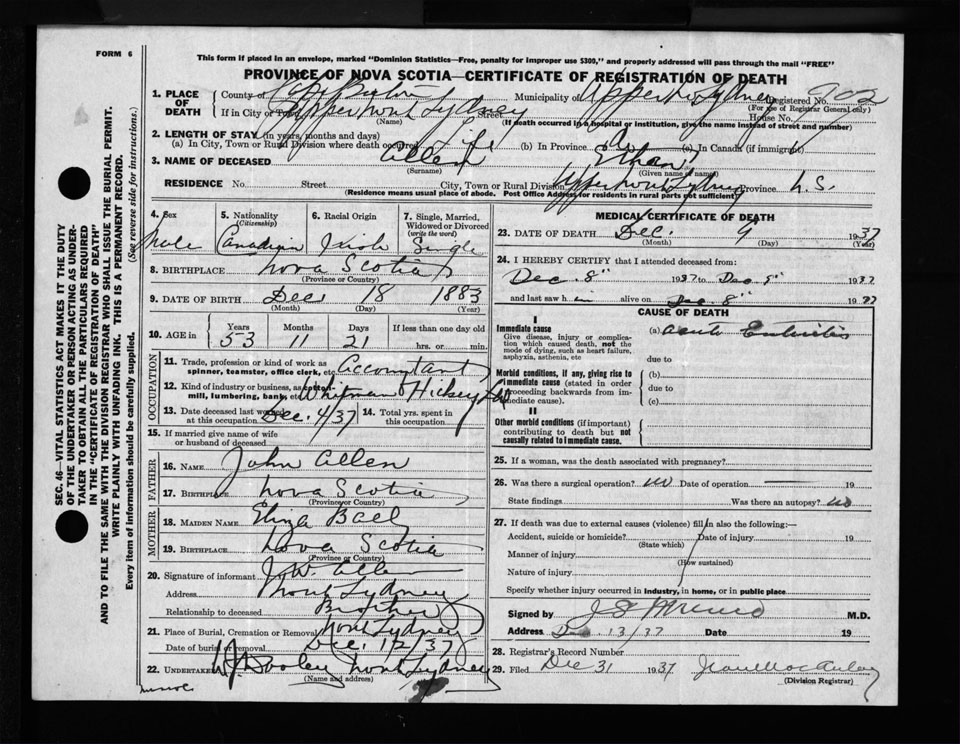 FORM 6
This form if placed in an envelope, marked "Dominion Statistics—Free, penalty for improper use $300," and properly addressed will pass through the mail "FREE"
PROVINCE OF NOVA SCOTIA—CERTIFICATE OF REGISTRATION OF DEATH
SEC. 46—VITAL STATISTICS ACT MAKES IT THE DUTY
OF THE UNDERTAKER OR PERSON ACTING AS UNDER-
TAKER TO OBTAIN ALL THE PARTICULARS REQUIRED
IN THE "CERTIFICATE OF REGISTRATION OF DEATH"
AND TO FILE THE SAME WITH THE DIVISION REGISTRAR WHO SHALL ISSUE THE BURIAL PERMIT.
WRITE PLAINLY WITH UNFADING INK. THIS IS A PERMANENT RECORD.
Every item of information should be carefully supplied. (See reverse side for instructions.)
1. PLACE OF DEATH County of Cape Breton Municipality of Upper No Sydney Registered No. 902
(For use of Registrar General only)
If in City or Town Upper North Sydney Street House No.
(Name) (If death occurred in a hospital or institution, give the name instead of street and number)
2. LENGTH OF STAY (in years, months and days)
(a) In City, Town or Rural Division where death occurred Life (b) In Province (c) In Canada (if immigrant)
3. NAME OF DECEASED Allen Ethan
(Surname) (Given name or names)
RESIDENCE No. Street City, Town or Rural Division Upper North Sydney Province N.S.
(Residence means usual place of abode. Post Office Address for residents in rural parts not sufficient)
4. Sex 5. Nationality 6. Racial Origin 7. Single, Married,
(Citizenship) Widowed or Divorced
(write the word)
Male Canadian Irish Single
8. BIRTHPLACE Nova Scotia
(Province or Country)
9. DATE OF BIRTH Dec 18 1883
(Month) (Day) (Year)
10. AGE in Years Months Days If less than one day old
53 11 21 hrs. or min.
OCCUPATION
11. Trade, profession or kind of work as
spinner, teamster, office clerk, etc. Accountant
12. Kind of industry or business, as cotton
mill, lumbering, bank, etc. Whitman Hickey
13. Date deceased last worked
at this occupation Dec. 4/37 14. Total yrs. spent in
this occupation
15. If married give name of wife
or husband of deceased
FATHER
16. NAME John Allen
17. BIRTHPLACE Nova Scotia
(Province or Country)
MOTHER
18. MAIDEN NAME Eliza Ball
19. BIRTHPLACE Nova Scotia
(Province or Country)
20. Signature of informant J.W. Allen
Address North Sydney
Relationship to deceased Brother
21. Place of Burial, Cremation or Removal North Sydney
Date of burial or removal Dec. 12/37
22. UNDERTAKER W.J. Dooley North Sydney
(Name and address)
MEDICAL CERTIFICATE OF DEATH
23. DATE OF DEATH Dec. 9 1937
(Month) (Day) (Year)
24. I HEREBY CERTIFY that I attended deceased from:
Dec. 8" 1937 to Dec. 9" 1937
and last saw him alive on Dec. 8" 1937
CAUSE OF DEATH
I
Immediate cause (a) Acute
Give disease, injury or complica-
tion which caused death, not the
mode of dying, such as heart failure,
asphyxia, asthenia, etc
due to
Morbid conditions, if any, giving rise to
immediate cause (stated in order
proceeding backwards from im-
mediate cause). (b)
due to
(c)
II
Other morbid conditions (if important)
contributing to death but not
causally related to immediate cause.
25. If a woman, was the death associated with pregnancy?
26. Was there a surgical operation? No Date of operation 19
State findings Was there an autopsy? No
27. If death was due to external causes (violence) fill in also the following:—
Accident, suicide or homicide? Date of injury 19
(State which)
Manner of injury
(How sustained)
Nature of injury
Specify whether injury occurred in industry, in home, or in public place
Signed by M.D.
Address Dec. 13/37 Date 19
28. Registrar's Record Number
29. Filed Dec 31 1937
(Division Registrar)